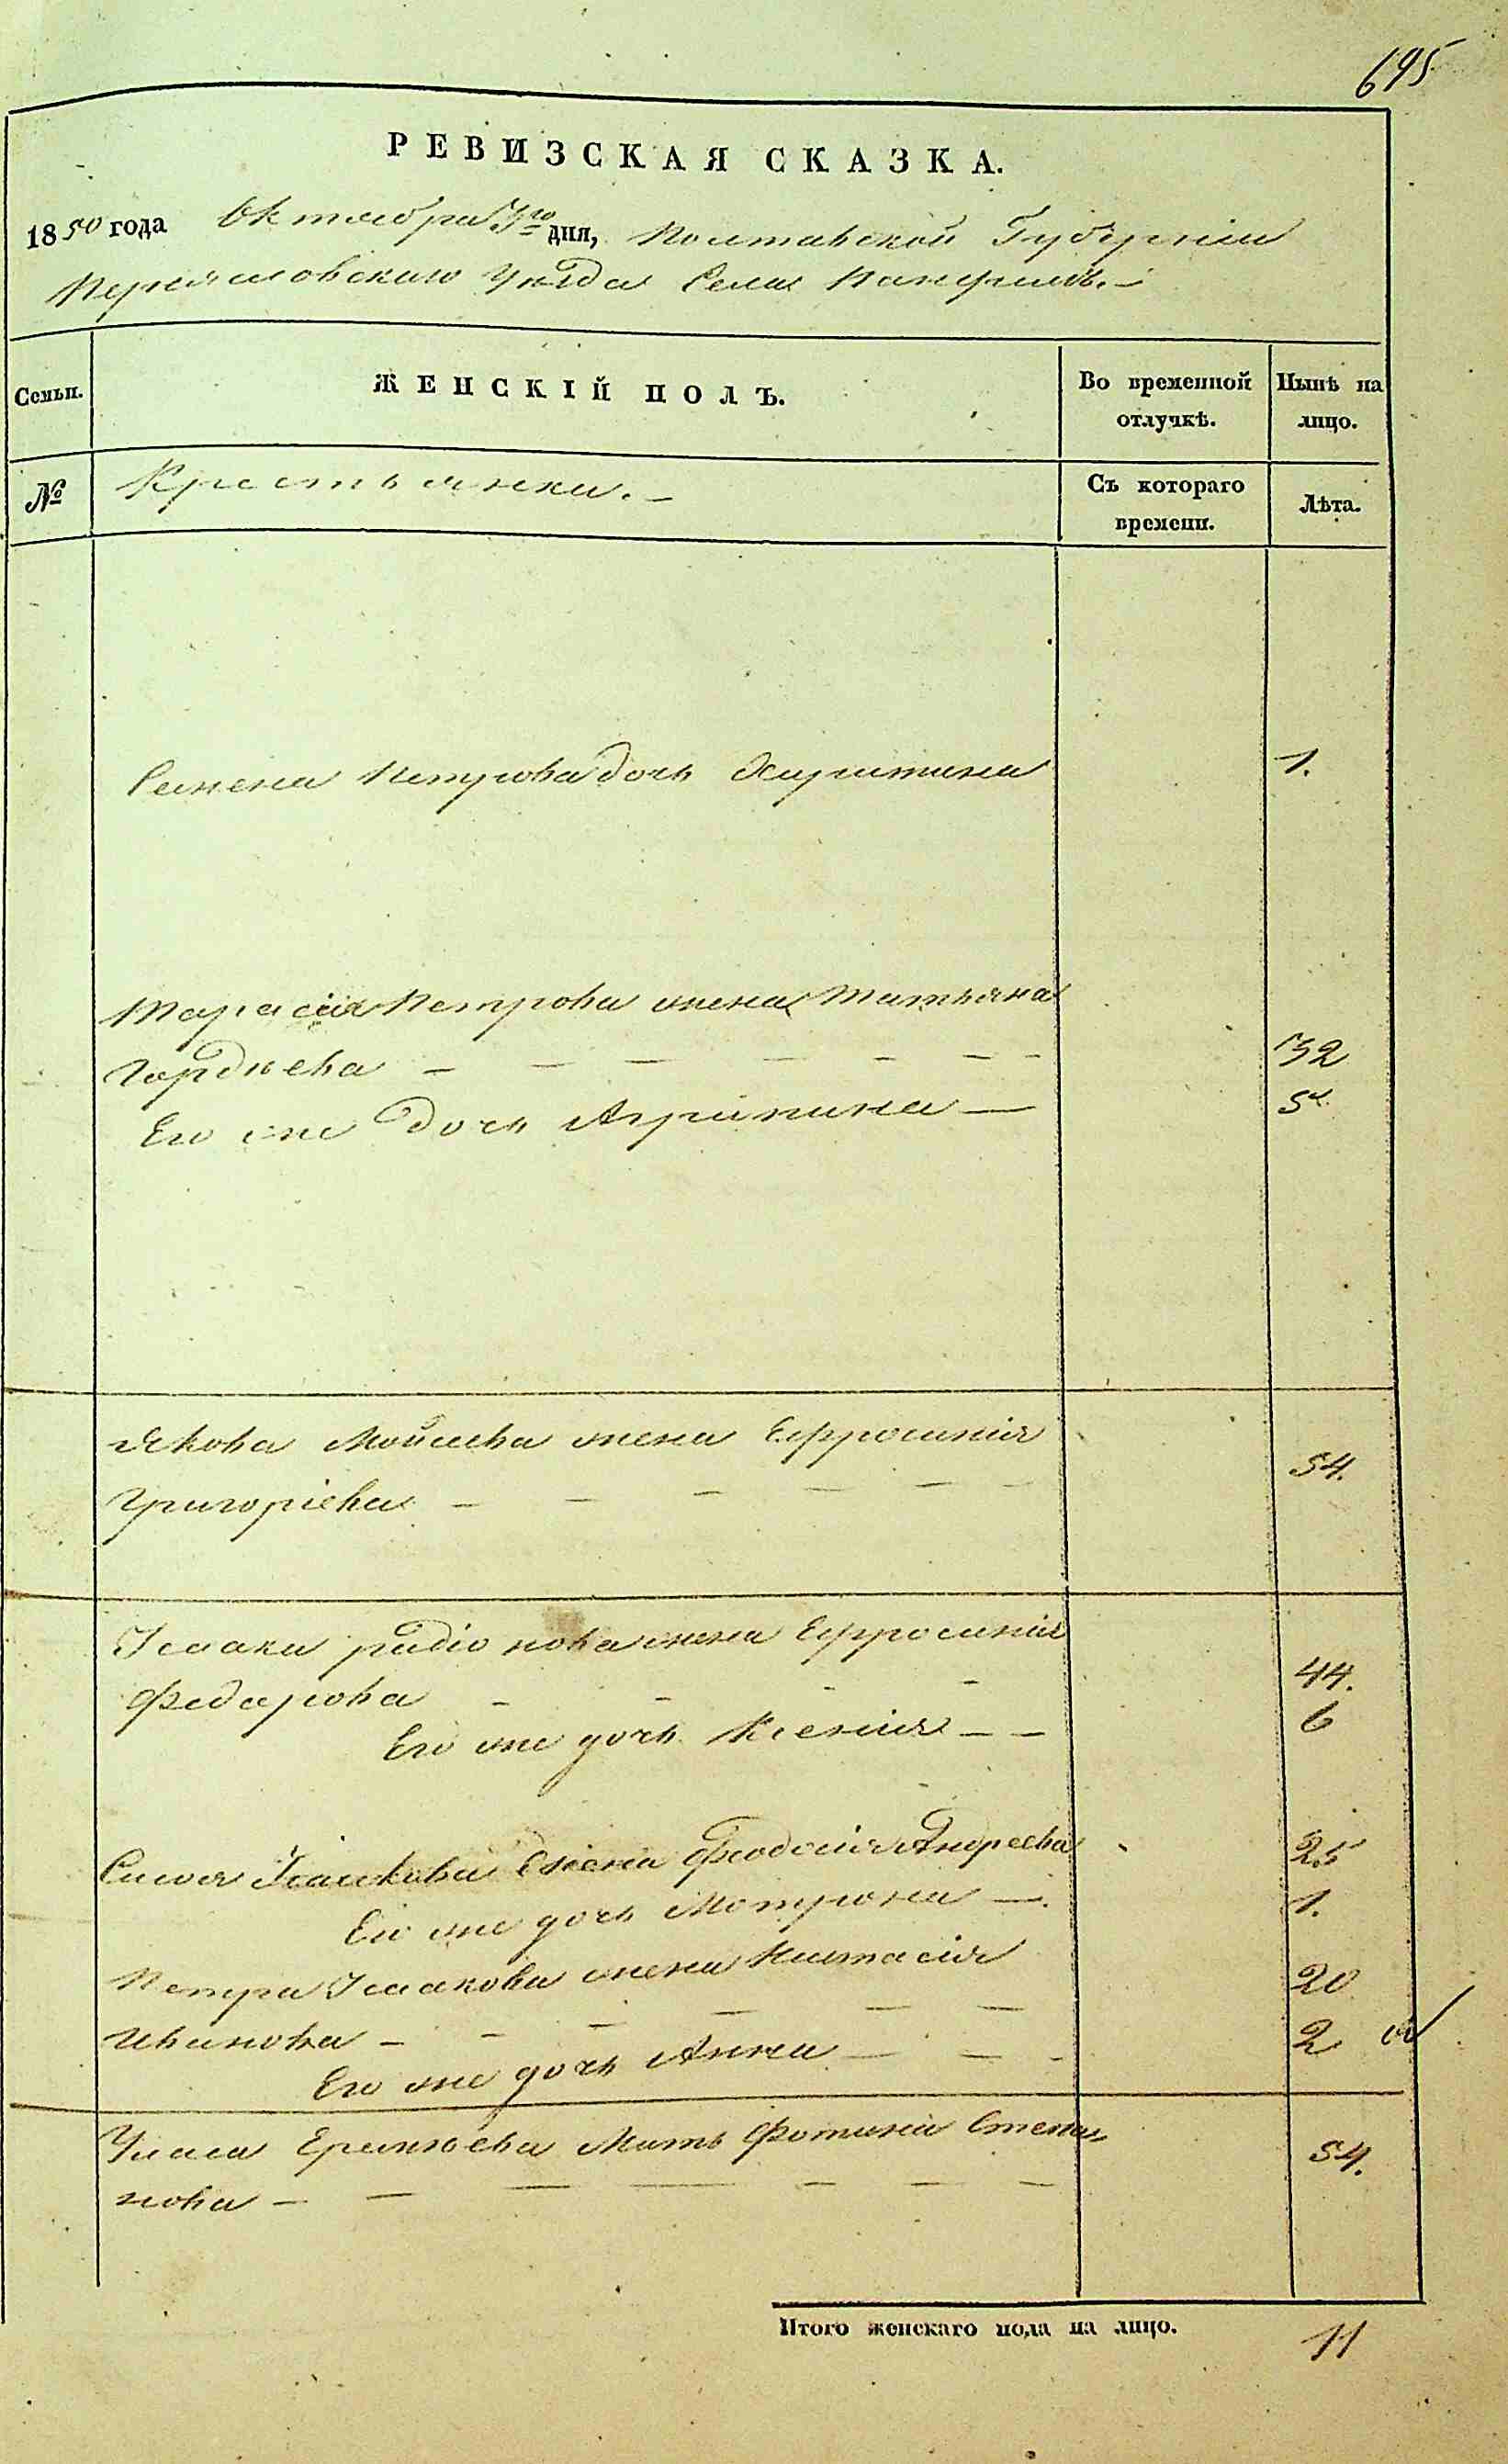 695
РЕВИЗСКАЯ СКАЗКА.
1850 года Октября 3го дня, Полтавской Губерніи
Переяславскаго Уѣзда Села Панфилъ.
Семьи. ЖЕНСКІЙ ПОЛЪ. Во временной отлучкѣ. Нынѣ на лицо.
№ Крестьянки. Съ котораго времени. Лѣта.
Семена Петрова дочь Христина 1.
Тарасія Петрова жена Татьяна
Гордѣева 32
Его же дочь Агрипина
Якова Мойсева жена Ефросинія
Григоріева 54.
Исаака Радіонова жена Ефросинія
Федорова 44.
Его же дочь Ксенія 6
Исаакова жена Феодосія Андреева 25
Его же дочь Мотрона 1.
Петра Исаакова жена Настасія
Иванова 20
Его же дочь Анна 2
Мать Фотинія Степа-
нова 54.
Итого женскаго пола на лицо. 11